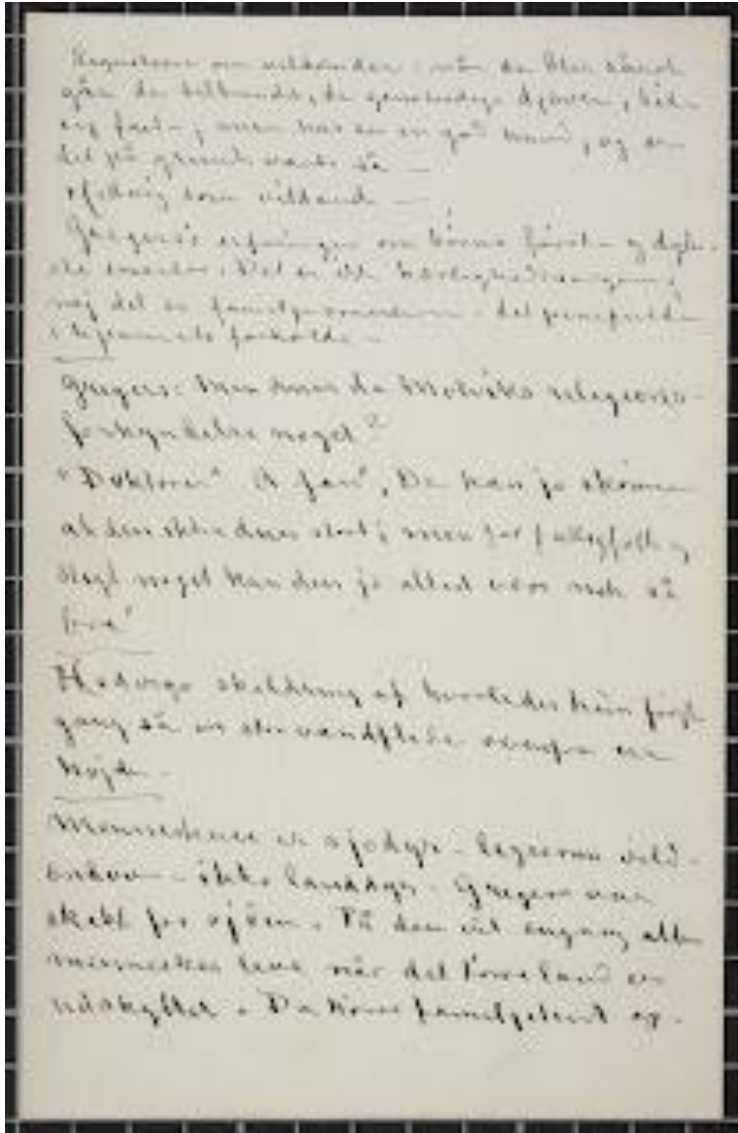 når de blir såret
går de tilbunds, de
sig fast – ; men har en en god hund, og er
det på så —
Hedvig som vildand —
Gregers's erfaringer om børns første og dybe-
ste smerter. Det er ikke kærlighedssorgene;
nej det er familjesmerterne – det pinefulde
i hjemmets forholde –
Gregers: Men duer da Molviks religiøse
forkyndelse noget?
"Doktoren" Å fan', De kan jo skønne
at den ikke duer stort; men for fattigfolk og
sligt noget kan den jo altid være nok så
bra'
Hedvigs skildring af hvorledes hun første
gang så en stor vandflade ovenfra en
højde –
Menneskene er sjødyr – ligesom vild-
anden – ikke landdyr – Gregers var
skabt for sjøen. På den vil engang alle
mennesker leve når det tørre land er
udskyllet. Da hører familjelivet op.